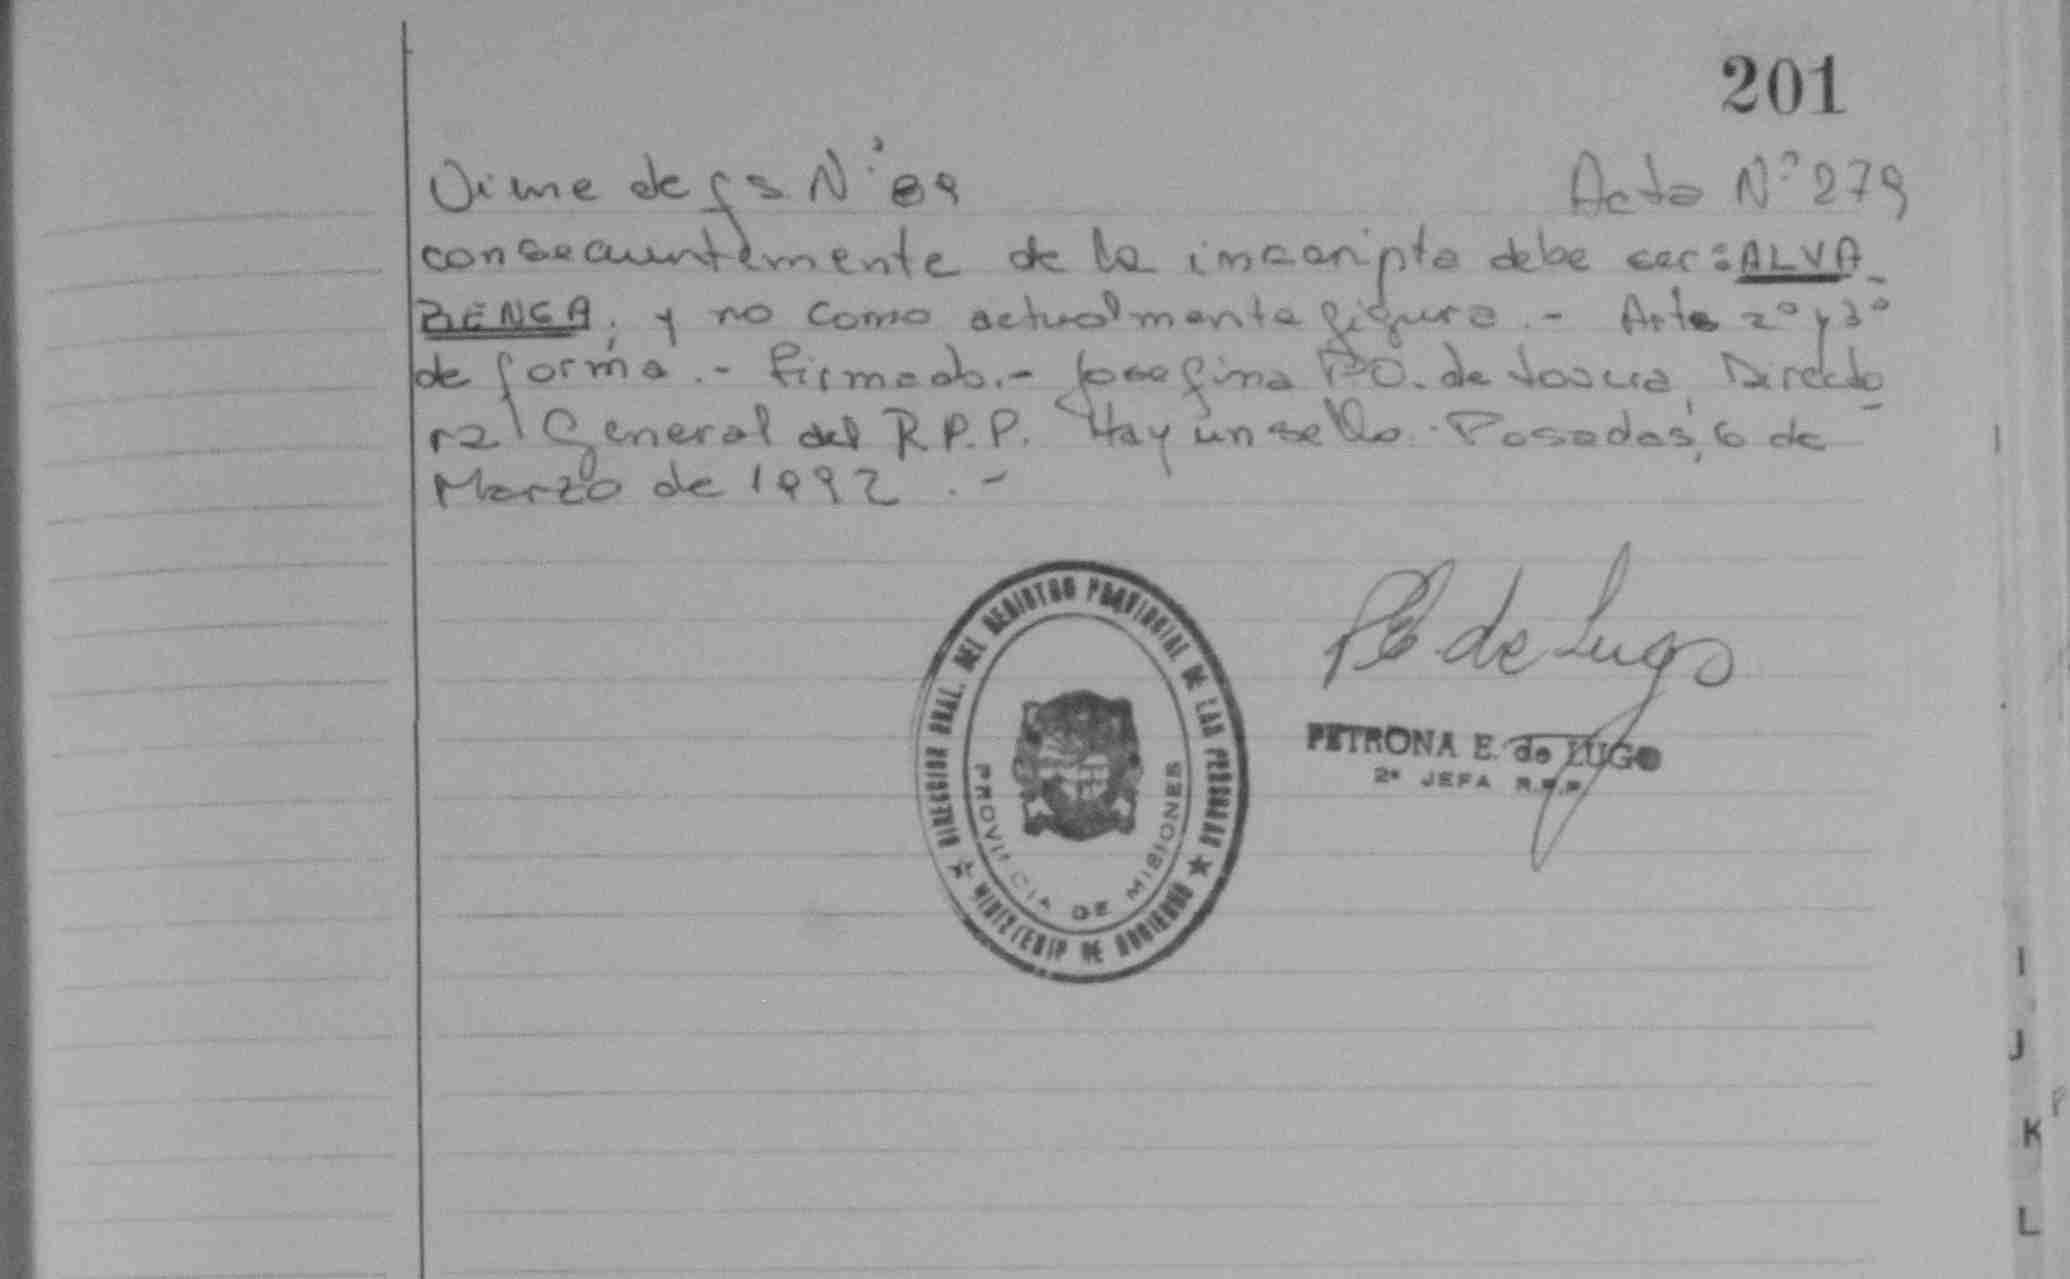 201
Viene de fs N° 89 Acta N° 279
consecuentemente de la inscripta debe ser: ALVA
RENGA; y no como actualmente figura.- Arts 2° y 3°
de forma.- Firmado.- Josefina PO. de Directo
ra General del R.P.P. Hay un sello.- Posadas, 6 de
Marzo de 1992.-
DIRECCION GRAL. DEL REGISTRO PROVINCIAL DE LAS PERSONAS
MINISTERIO DE GOBIERNO
PROVINCIA DE MISIONES
PE de Lugo
PETRONA E. de LUGO
2ª JEFA R.P.P.
I
J
K
L